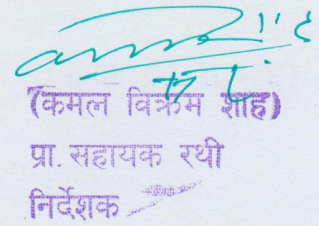 (कमल विक्रम शाह)
प्रा. सहायक रथी
निर्देशक